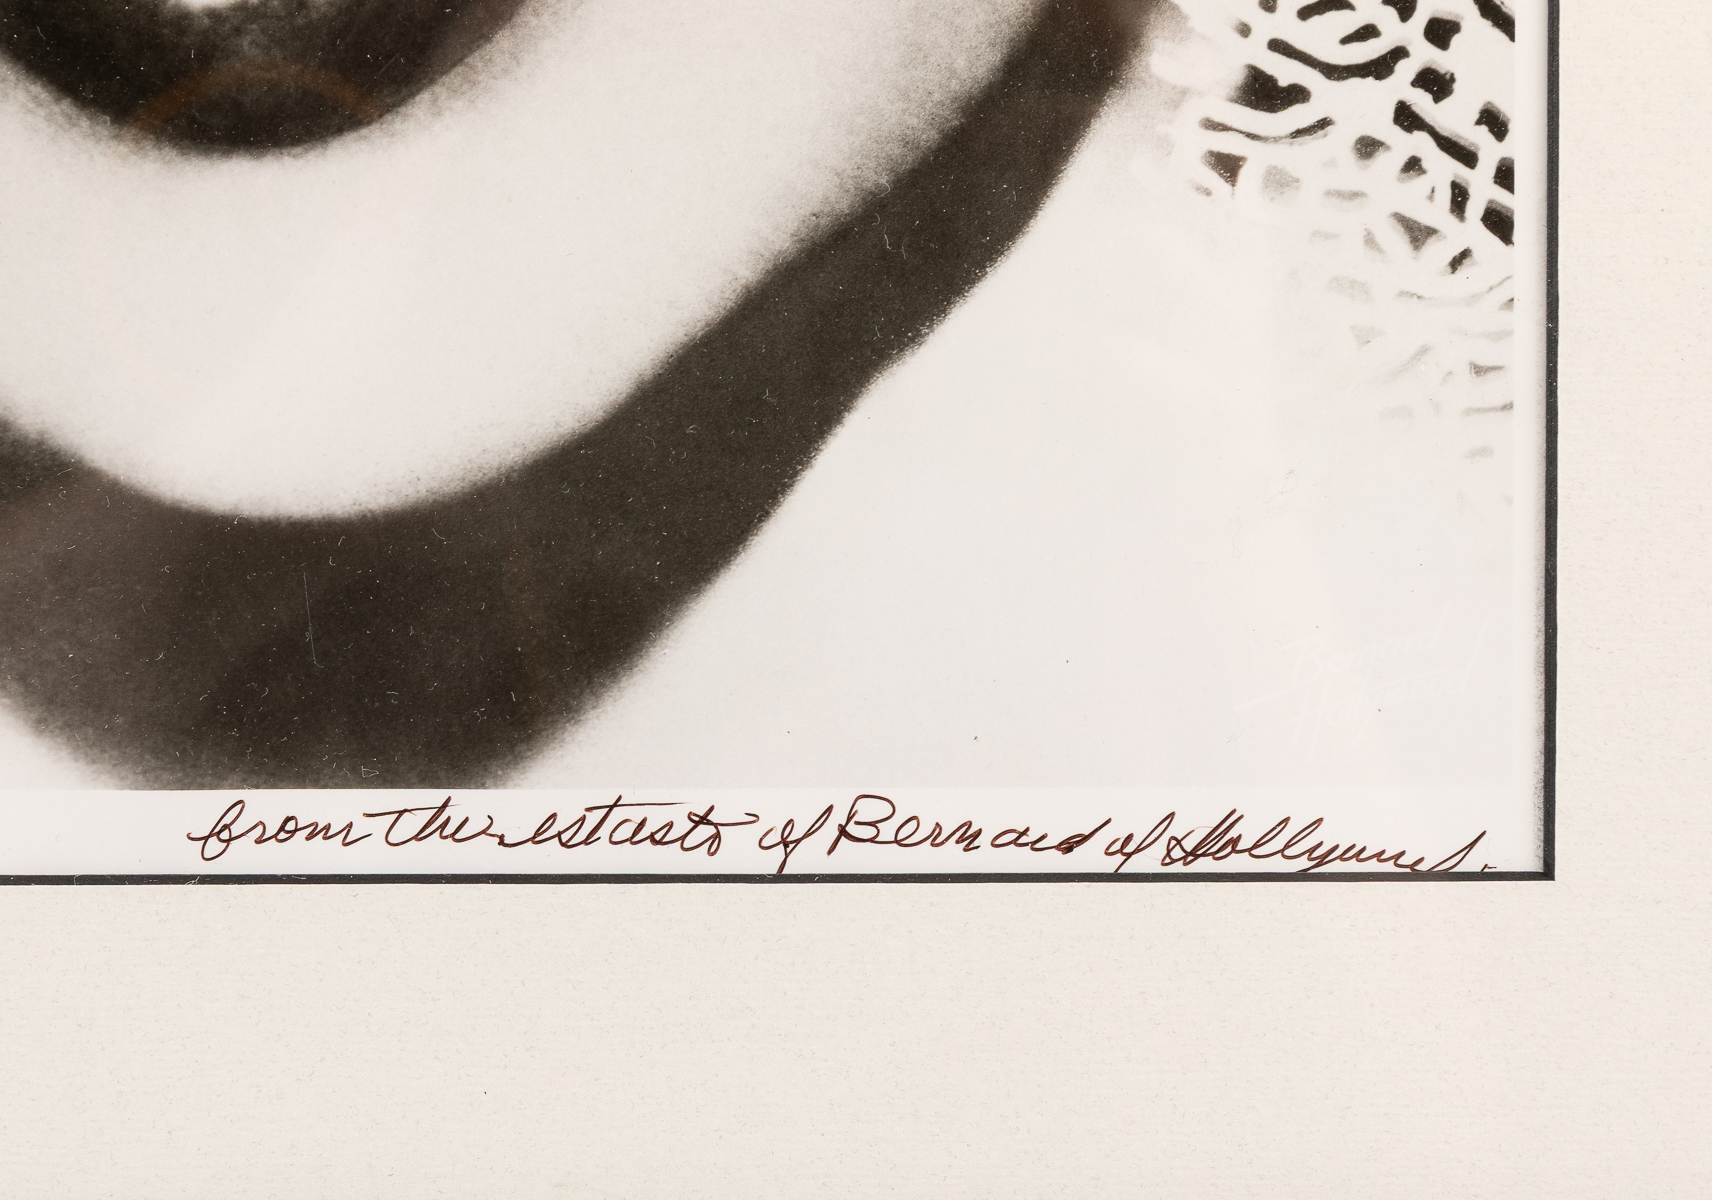 Bernard
Hollywood
from the estate of Bernard of Hollywood.